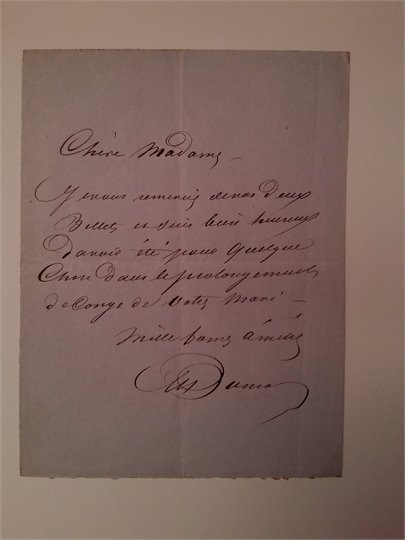 Chère Madame –
Je vous remercie de vos deux
Billets et suis bien heureux
d'avoir été pour quelque
Chose dans le prolongement
de Congé de votre Mari –
Mille bonnes amitiés
Alex Dumas